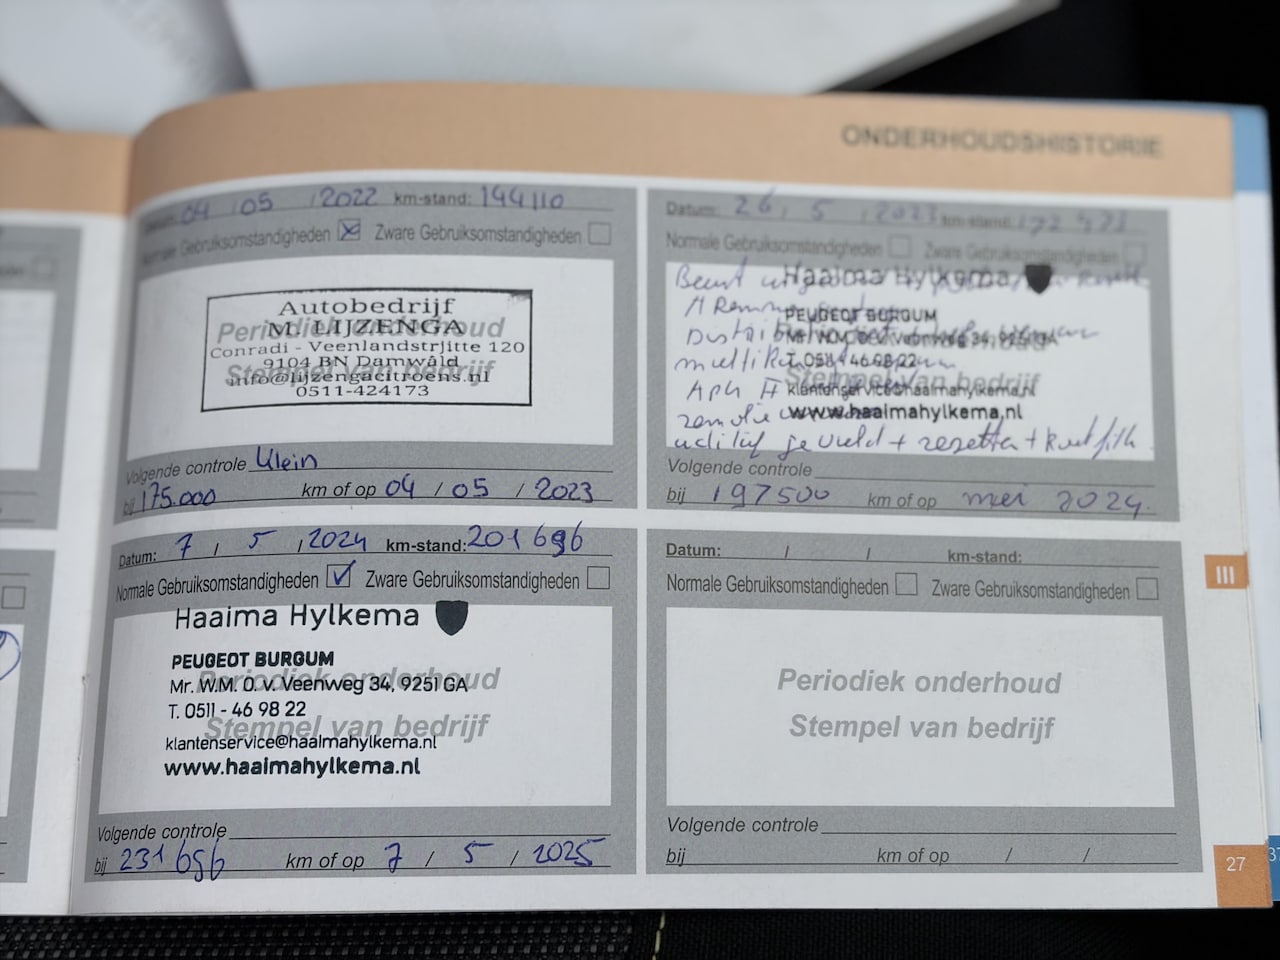 ONDERHOUDSHISTORIE
04 / 05 / 2022 km-stand: 144110
Normale Gebruiksomstandigheden Zware Gebruiksomstandigheden
Periodiek onderhoud
Stempel van bedrijf
Autobedrijf
M. LIJZENGA
Conradi - Veenlandstrjitte 120
9104 BN Damwâld
info@lijzengacitroens.nl
0511-424173
Volgende controle Klein
bij 175.000 km of op 04 / 05 / 2023
Datum: 26 / 5 / 2023 km-stand: 172 473
Normale Gebruiksomstandigheden Zware Gebruiksomstandigheden
Haaima Hylkema
PEUGEOT BURGUM
Mr. W.M. O. v. Veenweg 34, 9251 GA
T. 0511 - 46 98 22
Stempel van bedrijf
klantenservice@haaimahylkema.nl
www.haaimahylkema.nl
Beurt
gevuld +
Volgende controle
bij 197500 km of op mei 2024.
Datum: 7 / 5 / 2024 km-stand: 201 696
Normale Gebruiksomstandigheden Zware Gebruiksomstandigheden
Haaima Hylkema
PEUGEOT BURGUM
Periodiek onderhoud
Mr. W.M. O. v. Veenweg 34, 9251 GA
T. 0511 - 46 98 22
Stempel van bedrijf
klantenservice@haaimahylkema.nl
www.haaimahylkema.nl
Volgende controle
bij 231 696 km of op 7 / 5 / 2025
Datum: / / km-stand:
Normale Gebruiksomstandigheden Zware Gebruiksomstandigheden
Periodiek onderhoud
Stempel van bedrijf
Volgende controle
bij km of op / /
III
27